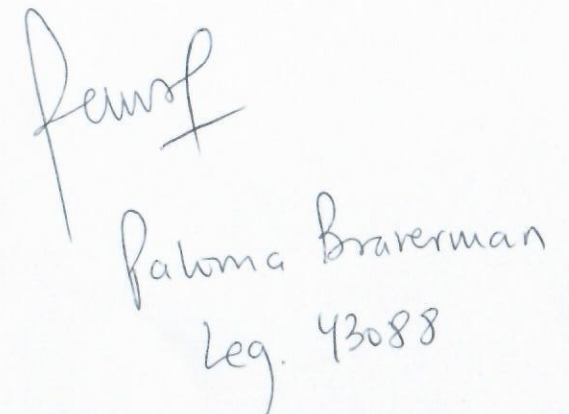 Paloma Braverman
Leg. 43088